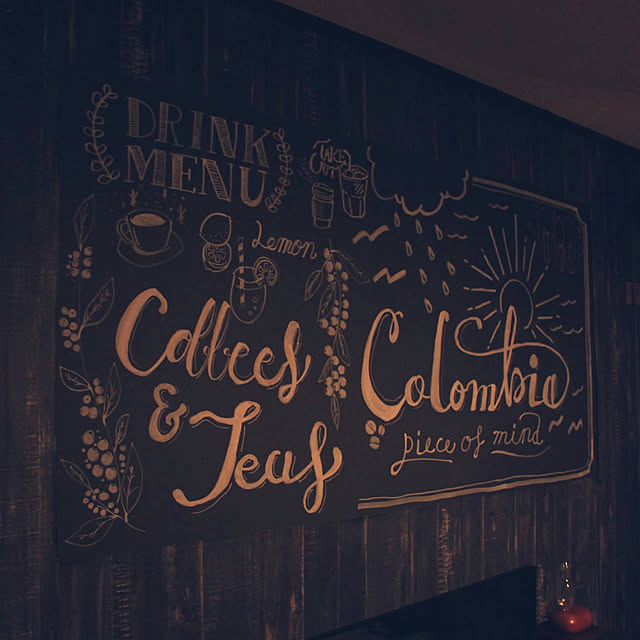 DRINK
MENU
TAKE
OUT
Lemon
Coffees
& Teas
Colombia
piece of mind